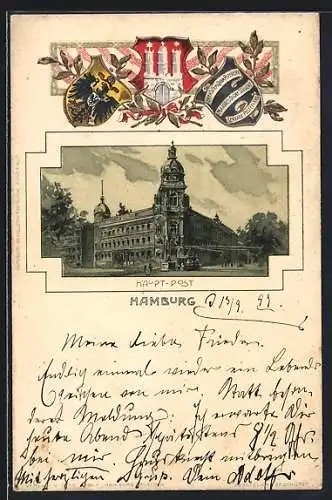 HAUPT-POST
HAMBURG
d 13/9. 99.
Meine liebe Frieda.
Endlich einmal wieder ein Lebens
zeichen von mir Statt beson
derer Meldung: Ich erwarte Dich
heute Abend spätestens 8 1/2 Uhr
bei mir mitbringen
Mit herzlichem Gruß. Dein Adolf